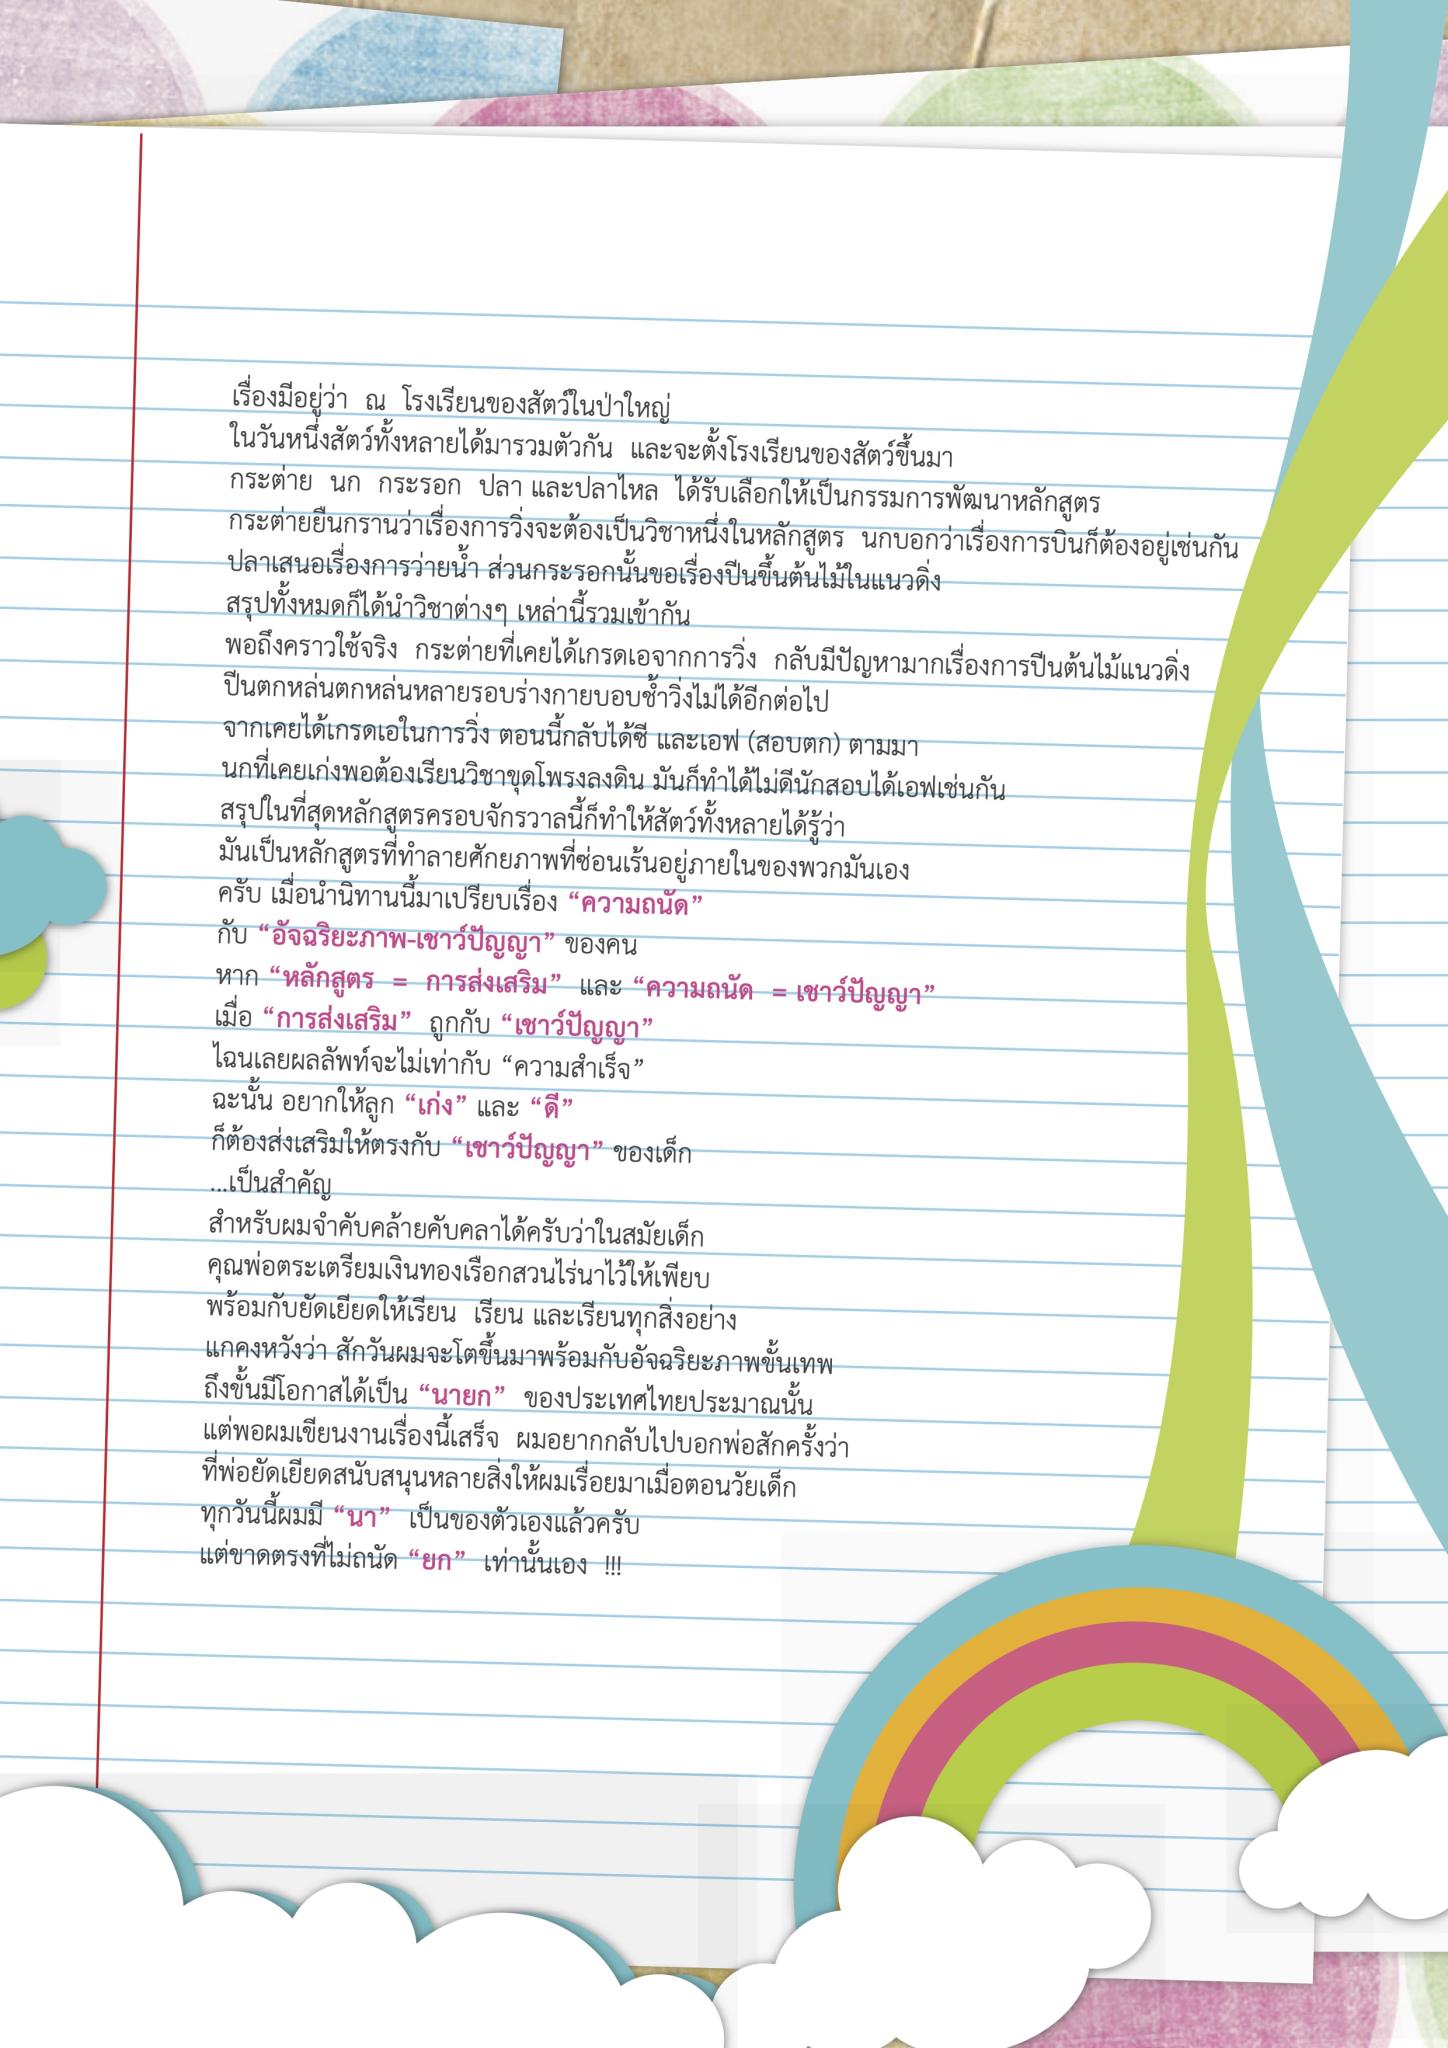 เรื่องมีอยู่ว่า ณ โรงเรียนของสัตว์ในป่าใหญ่
ในวันหนึ่งสัตว์ทั้งหลายได้มารวมตัวกัน และจะตั้งโรงเรียนของสัตว์ขึ้นมา
กระต่าย นก กระรอก ปลา และปลาไหล ได้รับเลือกให้เป็นกรรมการพัฒนาหลักสูตร
กระต่ายยืนกรานว่าเรื่องการวิ่งจะต้องเป็นวิชาหนึ่งในหลักสูตร นกบอกว่าเรื่องการบินก็ต้องอยู่เช่นกัน
ปลาเสนอเรื่องการว่ายน้ำ ส่วนกระรอกนั้นขอเรื่องปีนขึ้นต้นไม้ในแนวดิ่ง
สรุปทั้งหมดก็ได้นำวิชาต่างๆ เหล่านี้รวมเข้ากัน
พอถึงคราวใช้จริง กระต่ายที่เคยได้เกรดเอจากการวิ่ง กลับมีปัญหามากเรื่องการปีนต้นไม้แนวดิ่ง
ปีนตกหล่นตกหล่นหลายรอบร่างกายบอบช้ำวิ่งไม่ได้อีกต่อไป
จากเคยได้เกรดเอในการวิ่ง ตอนนี้กลับได้ซี และเอฟ (สอบตก) ตามมา
นกที่เคยเก่งพอต้องเรียนวิชาขุดโพรงลงดิน มันก็ทำได้ไม่ดีนักสอบได้เอฟเช่นกัน
สรุปในที่สุดหลักสูตรครอบจักรวาลนี้ก็ทำให้สัตว์ทั้งหลายได้รู้ว่า
มันเป็นหลักสูตรที่ทำลายศักยภาพที่ซ่อนเร้นอยู่ภายในของพวกมันเอง
ครับ เมื่อนำนิทานนี้มาเปรียบเรื่อง “ความถนัด”
กับ “อัจฉริยะภาพ-เชาว์ปัญญา” ของคน
หาก “หลักสูตร = การส่งเสริม” และ “ความถนัด = เชาว์ปัญญา”
เมื่อ “การส่งเสริม” ถูกกับ “เชาว์ปัญญา”
ไฉนเลยผลลัพท์จะไม่เท่ากับ “ความสำเร็จ”
ฉะนั้น อยากให้ลูก “เก่ง” และ “ดี”
ก็ต้องส่งเสริมให้ตรงกับ “เชาว์ปัญญา” ของเด็ก
...เป็นสำคัญ
สำหรับผมจำคับคล้ายคับคลาได้ครับว่าในสมัยเด็ก
คุณพ่อตระเตรียมเงินทองเรือกสวนไร่นาไว้ให้เพียบ
พร้อมกับยัดเยียดให้เรียน เรียน และเรียนทุกสิ่งอย่าง
แกคงหวังว่า สักวันผมจะโตขึ้นมาพร้อมกับอัจฉริยะภาพขั้นเทพ
ถึงขั้นมีโอกาสได้เป็น “นายก” ของประเทศไทยประมาณนั้น
แต่พอผมเขียนงานเรื่องนี้เสร็จ ผมอยากกลับไปบอกพ่อสักครั้งว่า
ที่พ่อยัดเยียดสนับสนุนหลายสิ่งให้ผมเรื่อยมาเมื่อตอนวัยเด็ก
ทุกวันนี้ผมมี “นา” เป็นของตัวเองแล้วครับ
แต่ขาดตรงที่ไม่ถนัด “ยก” เท่านั้นเอง !!!